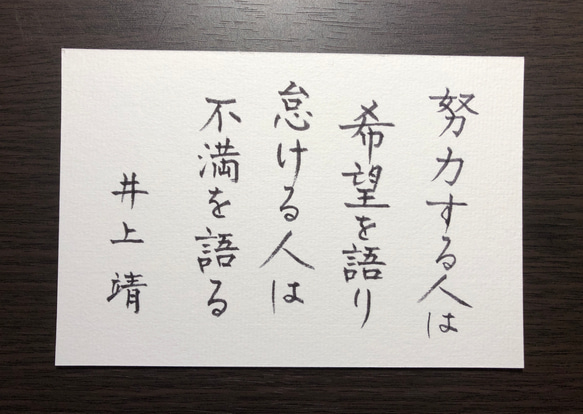 努力する人は
希望を語り
怠ける人は
不満を語る
井上靖